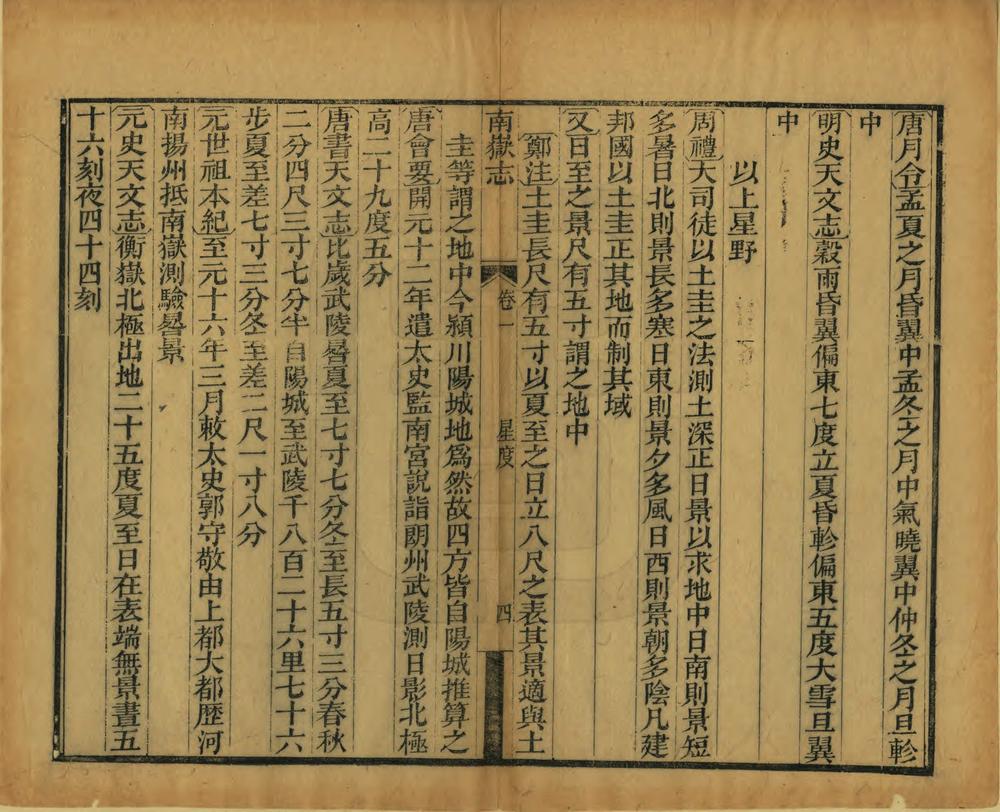 唐月令孟夏之月昏翼中孟冬之月中氣曉翼中仲冬之月旦軫
中
明史天文志穀雨昏翼偏東七度立夏昏軫偏東五度大雪旦翼
中
以上星野
周禮大司徒以土圭之法測土深正日景以求地中日南則景短
多暑日北則景長多寒日東則景夕多風日西則景朝多陰凡建
邦國以土圭正其地而制其域
又日至之景尺有五寸謂之地中
鄭注土圭長尺有五寸以夏至之日立八尺之表其景適與土
南嶽志 卷一 星度 四
圭等謂之地中今潁川陽城地爲然故四方皆自陽城推算之
唐會要開元十二年遣太史監南宮說詣朗州武陵測日影北極
高二十九度五分
唐書天文志比歲武陵晷夏至七寸七分冬至長五寸三分春秋
二分四尺三寸七分半自陽城至武陵千八百二十六里七十六
步夏至差七寸三分冬至差二尺一寸八分
元世祖本紀至元十六年三月敕太史郭守敬由上都大都歷河
南揚州抵南嶽測驗晷景
元史天文志衡嶽北極出地二十五度夏至日在表端無景晝五
十六刻夜四十四刻